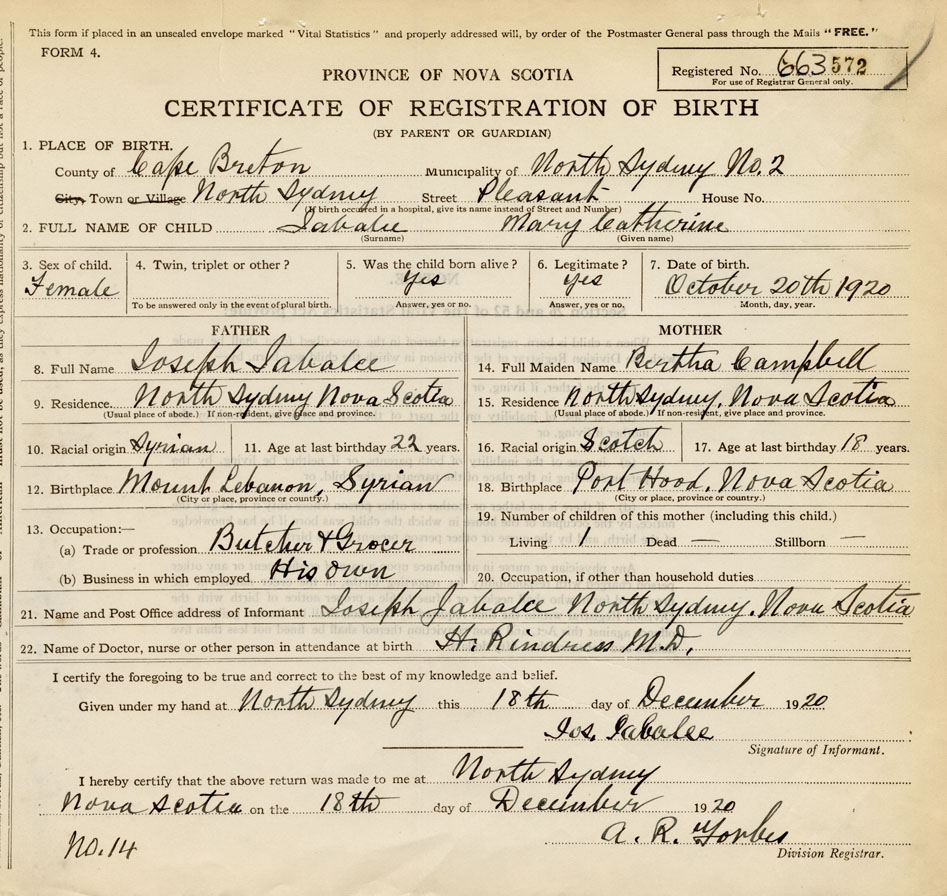 This form if placed in an unsealed envelope marked "Vital Statistics" and properly addressed will, by order of the Postmaster General pass through the Mails "FREE."
FORM 4.
Registered No. 663 572
For use of Registrar General only.
PROVINCE OF NOVA SCOTIA
CERTIFICATE OF REGISTRATION OF BIRTH
(BY PARENT OR GUARDIAN)
1. PLACE OF BIRTH.
County of Cape Breton Municipality of North Sydney No. 2
City, Town or Village North Sydney Street Pleasant House No.
(If birth occurred in a hospital, give its name instead of Street and Number)
2. FULL NAME OF CHILD Jabalee Mary Catherine
(Surname) (Given name)
3. Sex of child. 4. Twin, triplet or other? 5. Was the child born alive? 6. Legitimate? 7. Date of birth.
Female Yes Yes October 20th 1920
To be answered only in the event of plural birth. Answer, yes or no. Answer, yes or no. Month, day, year.
FATHER
8. Full Name Joseph Jabalee
9. Residence. North Sydney Nova Scotia
(Usual place of abode.) If non-resident, give place and province.
10. Racial origin Syrian 11. Age at last birthday 22 years.
12. Birthplace Mount Lebanon, Syrian
(City or place, province or country.)
13. Occupation:—
(a) Trade or profession Butcher & Grocer
(b) Business in which employed His own
MOTHER
14. Full Maiden Name Bertha Campbell
15. Residence North Sydney, Nova Scotia
(Usual place of abode.) If non-resident, give place and province.
16. Racial origin Scotch 17. Age at last birthday 18 years.
18. Birthplace Port Hood, Nova Scotia
(City or place, province or country.)
19. Number of children of this mother (including this child.)
Living 1 Dead — Stillborn —
20. Occupation, if other than household duties
21. Name and Post Office address of Informant Joseph Jabalee North Sydney, Nova Scotia
22. Name of Doctor, nurse or other person in attendance at birth H. Rindress M.D.
I certify the foregoing to be true and correct to the best of my knowledge and belief.
Given under my hand at North Sydney this 18th day of December 1920
Jos. Jabalee
Signature of Informant.
I hereby certify that the above return was made to me at North Sydney
Nova Scotia on the 18th day of December 1920
A. R. Forbes
Division Registrar.
No. 14